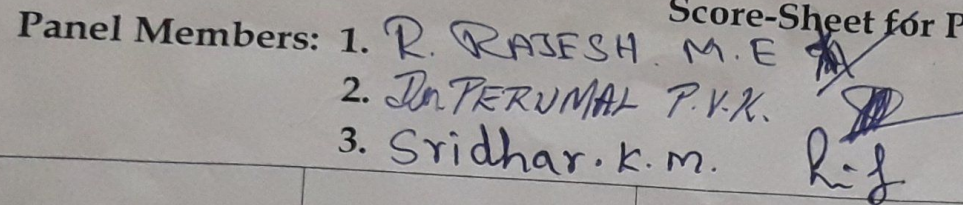 Score-Sheet for P
Panel Members: 1. R. RAJESH. M.E
2. Dr. PERUMAL P.V.K.
3. Sridhar. K. m.